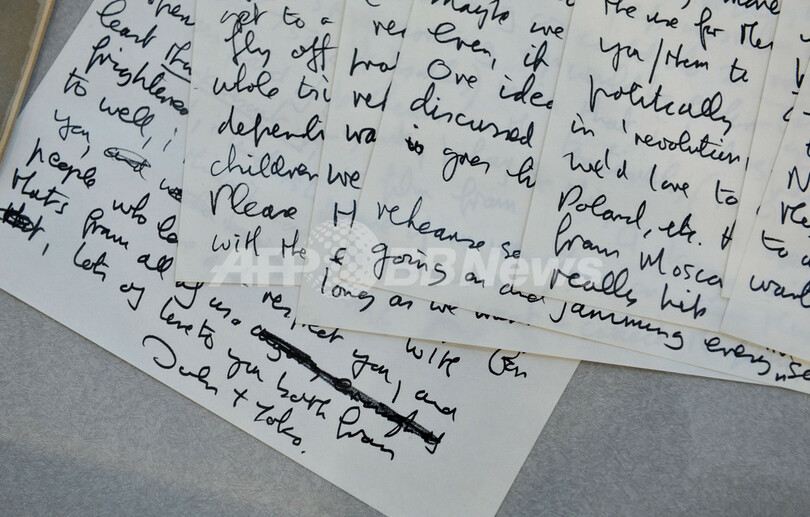 open
least that
to well, i
you, and we
people who lo
respect you, and
thats from all of us
lots of love to you both from
John + Yoko.
yet to a
fly off
whole tri
dependi
children
Please
with the
re
pro
rel
wa
we
H
f
long as we wan
with
maybe we
even, if
One idea
discussed
is goes h
rehearse se
going on and jamming every
the use for the
you/them to
politically
in 'revolution
we'd love to
Poland, etc.
from Mosco
really hip
N
re
to a
want
AFP BB News